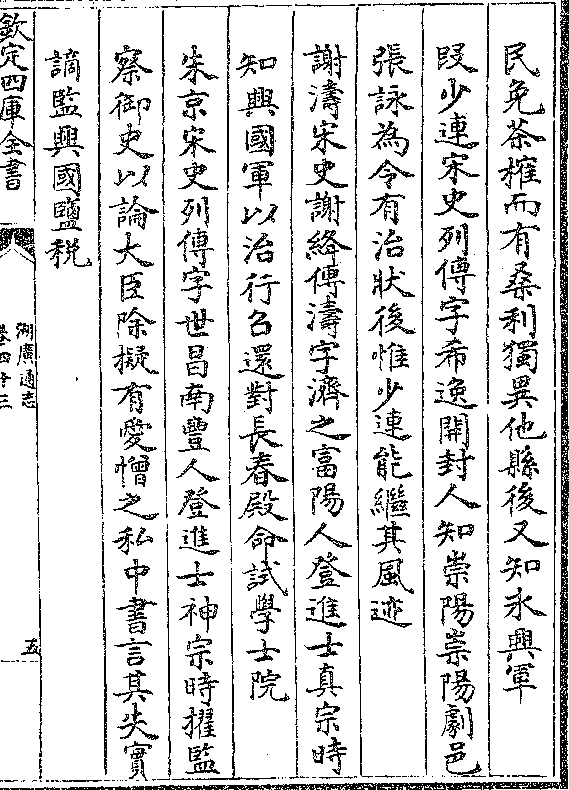 民免茶榷而有桑利獨異他縣後又知永興軍
段少連宋史列傳字希逸開封人知崇陽崇陽劇邑
張詠為令有治狀後惟少連能繼其風迹
謝濤宋史謝絳傳濤字濟之富陽人登進士真宗時
知興國軍以治行召還對長春殿命試學士院
朱京宋史列傳字世昌南豐人登進士神宗時擢監
察御史以論大臣除擬有愛憎之私中書言其失實
謫監興國鹽税
欽定四庫全書
湖廣通志
卷四十三
五